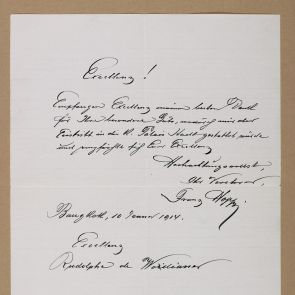 Exzellenz!
Empfangen Exzellenz meinen besten Dank
für Ihre besondere Güte, wodurch mir der
Eintritt in der K. Palais Stadt gestattet wurde
und empfiehlt sich Eur Exzellenz
Hochachtungsvollst,
Ihr Verehrer,
Franz Hopp.
Bangkok, 10 Januar 1914.
Exzellenz
Rudolphe de